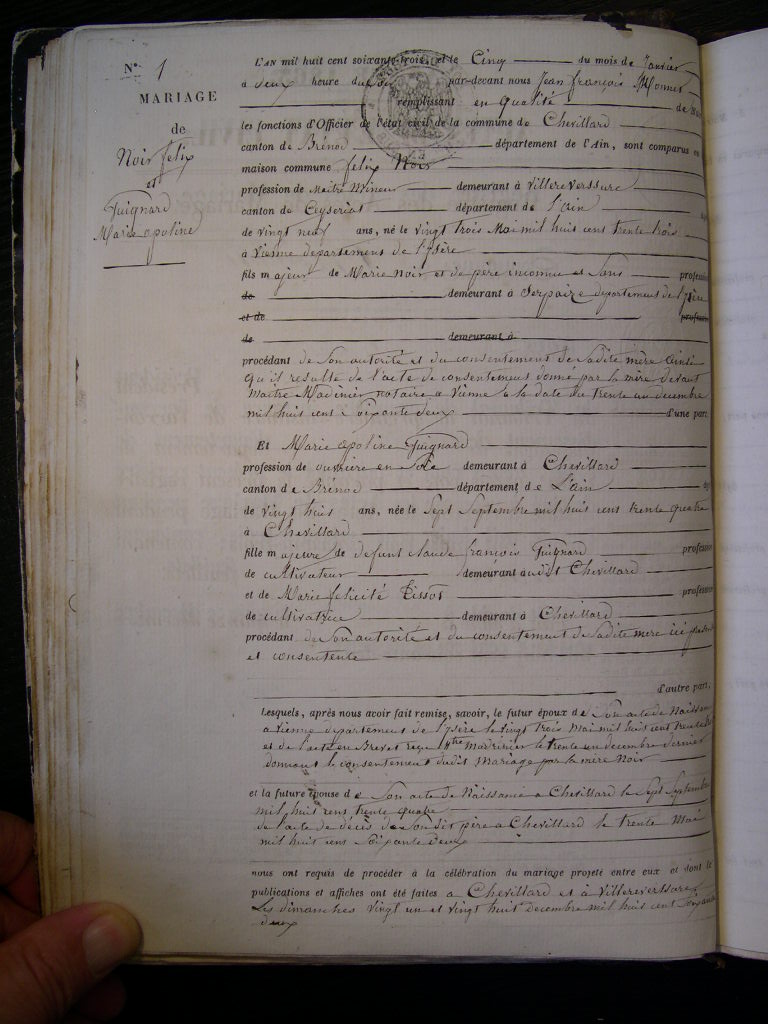 N° 1
MARIAGE
de
Noir felix
et
Guignard
Marie apoline
L'AN mil huit cent soixante-trois, et le Cinq du mois de Janvier
à deux heure du soir par-devant nous Jean françois Monnet
remplissant en qualité de
les fonctions d'Officier de l'état civil de la commune de Chevillard
canton de Brénod département de l'Ain, sont comparus en
maison commune felix Noir
profession de Maitre Mineur demeurant à Villereverssure
canton de Ceyseriat département de l'ain
de vingt neuf ans, né le vingt trois Mai mil huit cent trente trois
à Vienne departement de l'ysère
fils majeur de Marie Noir et de père inconnu et Sans profession
de demeurant à Serpaize departement de l'ysère
et de profession
de demeurant à
procédant de Son autorité et du consentement de Sadite mère ainsi
qu'il resulte de l'acte de consentement donné par la mère devant
Maitre notaire a Vienne à la date du trente un decembre
mil huit cent soixante deux d'une part.
ET Marie apoline Guignard
profession de ouvrière en Soie demeurant à Chevillard
canton de Brénod département de L'ain
de vingt huit ans, née le Sept Septembre mil huit cent trente quatre
à Chevillard
fille majeure de defunt claude françois Guignard profession
de cultivateur demeurant audit Chevillard
et de Marie félicité Tissot profession
de cultivatrice demeurant à Chevillard
procédant de Son autorité et du consentement de Sadite mere ici présente
et consentente
d'autre part.
Lesquels, après nous avoir fait remise, savoir, le futur époux de Son acte de Naissance
a Vienne departement de l'ysère le vingt trois Mai mil huit cent trente trois
et de l'acte en Brevet reçu Mtre le trente un decembre dernier
donnant le consentement dudit Mariage par la mère Noir
et la future épouse de Son acte de Naissance a Chevillard le Sept Septembre
mil huit cent trente quatre
de l'acte de décès de Son dit père a Chevillard le trente Mai
mil huit cent soixante deux
nous ont requis de procéder à la célébration du mariage projeté entre eux et dont les
publications et affiches ont été faites a Chevillard et à Villereverssure
Les dimanches vingt un et vingt huit decembre mil huit cent soixante
deux